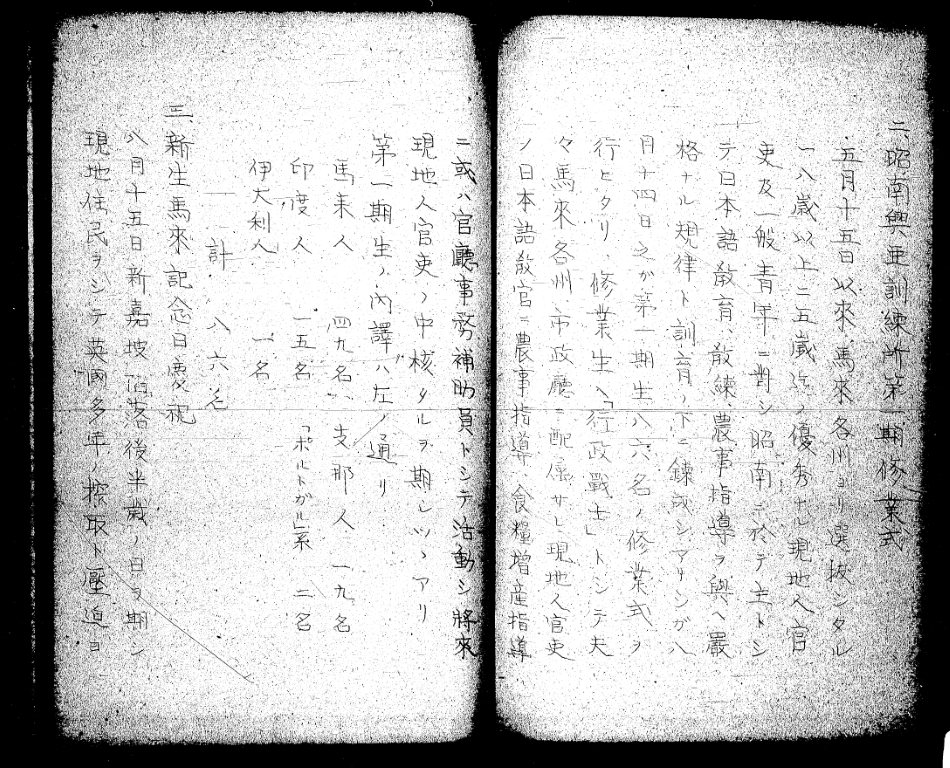 二、昭南興亜訓練所第一期修業式
五月十五日以來馬來各州ヨリ選抜シタル
一八歳以上二五歳迄ノ優秀ナル現地人官
吏及一般青年ニ對シ昭南ニ於テ主トシ
テ日本語敎育、敎練、農事指導ヲ與ヘ嚴
格ナル規律ト訓育ノ下ニ錬成シアリシガ八
月十四日之ガ第一期生八六名ノ修業式ヲ
行ヒタリ、修業生ハ「行政戰士」トシテ夫
々馬來各州、市政廳ニ配屬サレ現地人官吏
ノ日本語敎官ニ農事指導、食糧増産指導
ニ或ハ官廳事務補助員トシテ活動シ將來
現地人官吏ノ中核タルヲ期シツヽアリ
第一期生ノ內譯ハ左ノ通リ
馬來人 四九名 支那人 一九名
印度人 一五名 「ポルトガル」系 二名
伊太利人 一名
計 八六名
三、新生馬來記念日慶祝
八月十五日新嘉坡陷落後半歳ノ日ヲ期シ
現地住民ヲシテ英國多年ノ搾取ト壓迫ヨ